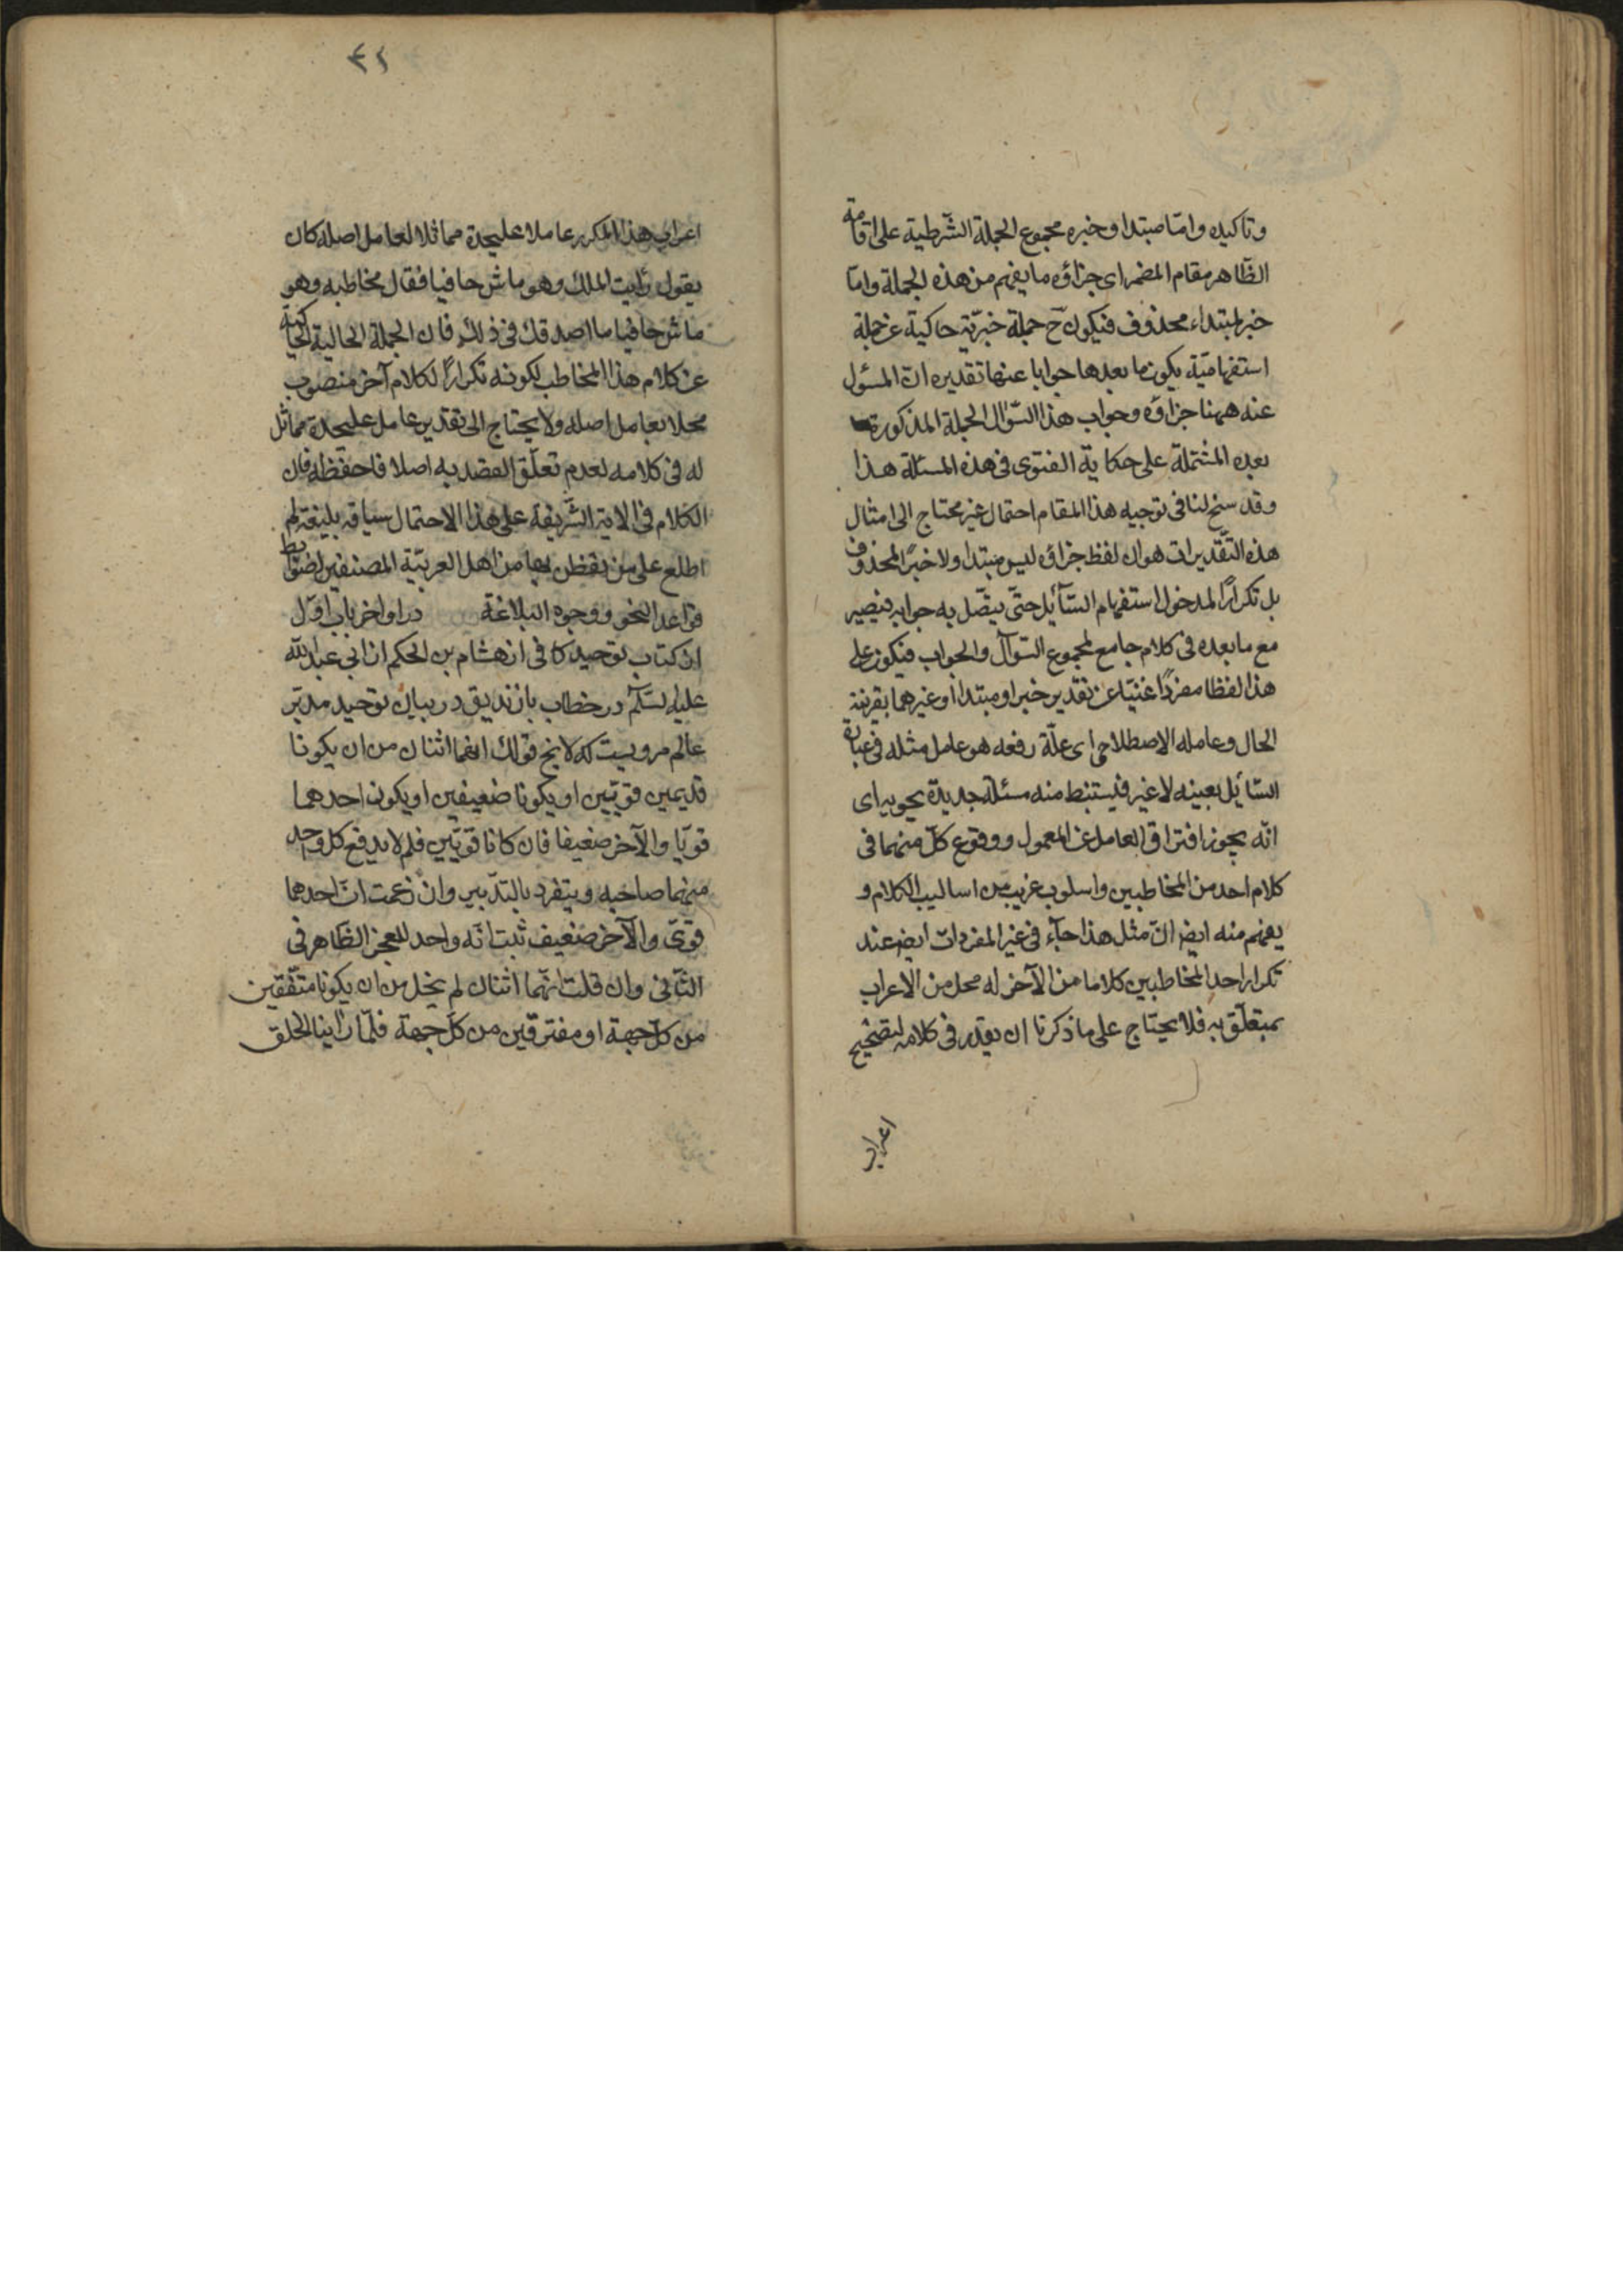 وتاكيده وامّا مبتدا وخبره مجموع الجملة الشّرطية على اقامة
الظّاهر مقام المضمر اى جزاؤه ما يفهم من هذه الجملة وامّا
خبر لمبتداء محذوف فيكون ح جملة خبرّية حاكية عن جملة
استفهاميّة يكون ما بعدها جوابا عنها تقديره انّ المسئول
عنه ههنا جزاؤه وجواب هذا السّؤال الجملة المذكورة
بعده المشتملة على حكاية الفتوى فى هذه المسئلة هذا
وقد سنح لنا فى توجيه هذا المقام احتمال غير محتاج الى امثال
هذه التّقديرات هو ان لفظ جزاؤه ليس مبتدا ولا خبرًا لمحذوف
بل تكرارًا لمدخول استفهام السّآئل حتّى يتصّل به جوابه فيصير
مع ما بعده فى كلام جامع لمجموع السّوآل والجواب فيكون على
هذا لفظا مفردًا غنيّا عن تقدير خبر او مبتدا او غيرهما بقرينة
الحال وعامله الاصطلاحى اى علّة رفعه هو عامل مثله فى عبارة
السّائل بعينه لا غير فليستنبط منه مسئلة جديدة نحويه اى
انّه يجوز افتراق العامل عن المعمول ووقوع كلّ منهما فى
كلام احد من المخاطبين واسلوب غريب من اساليب الكلام و
يفهم منه ايض انّ مثل هذا جآء فى غير المفردات ايض عند
تكرار احد المخاطبين كلاما من الآخر له محل من الاعراب
بمتعلّق به فلا يحتاج على ما ذكرنا ان يقدر فى كلامه لتصحيح
اعراب
٤١
اعراب هذا المكرر عاملا عليحدة مماثلا لعامل اصله كان
يقول رايت الملك وهو ماش حافيا فقال مخاطبه وهو
ماش حافيا ما اصدقك فى ذلك فان الجملة الحالية الحاكية
عن كلام هذا المخاطب لكونه تكرارًا لكلام آخر منصوب
محلا بعامل اصله ولا يحتاج الى تقدير عامل عليحدة مماثل
له فى كلامه لعدم تعلّق القصد به اصلا فاحفظه فان
الكلام فى الاية الشّريفة على هذا الاحتمال سياقه بليغة لم
اطلع على من تفطن بها من اهل العربيّة المصنفين لضوابط
قواعد النحو ووجوه البلاغة در اواخر باب اوّل
از كتاب توحيد كافى از هشام بن الحكم از ابى عبد الله
عليه السّلام در خطاب با زنديق در بيان توحيد مدبّر
عالم مرويست كه لا يخ قولك انهما اثنان من ان يكونا
قديمين قويّين او يكونا ضعيفين او يكون احدهما
قويّا والآخر ضعيفا فان كانا قويّين فلم لا يدفع كل واحد
منهما صاحبه ويتفرد بالتدّبير وان زعمت انّ احدهما
قوىّ والآخر ضعيف ثبت انّه واحد للعجز الظّاهر فى
الثّانى وان قلت انّهما اثنان لم يخل من ان يكونا متّفقين
من كلّ جهة او مفترقين من كلّ جهة فلمّا راينا الخلق